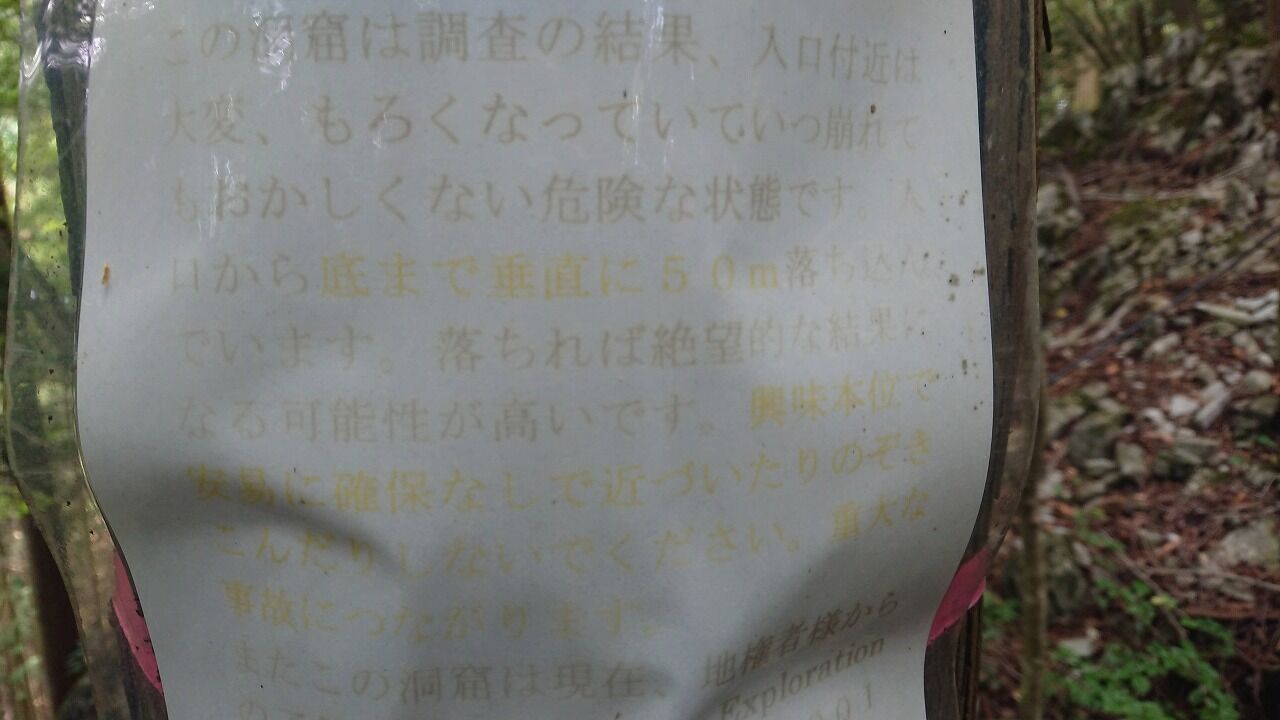 この洞窟は調査の結果、入口付近は
大変、もろくなっていていつ崩れて
もおかしくない危険な状態です。入
口から底まで垂直に５０ｍ落ち込ん
でいます。落ちれば絶望的な結果に
なる可能性が高いです。興味本位で
安易に確保なしで近づいたりのぞき
こんだりしないでください。重大な
事故につながります。
またこの洞窟は現在、地権者様から
Exploration